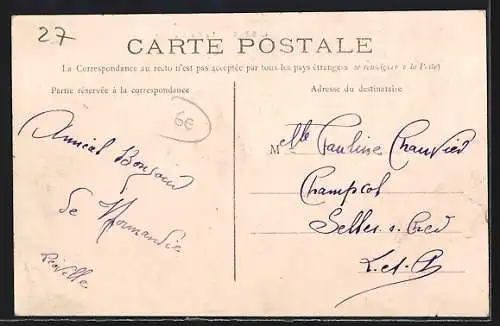 27
CARTE POSTALE
La Correspondance au recto n'est pas acceptée par tous les pays étrangers se renseigner à la Poste)
Partie réservée à la correspondance
Adresse du destinataire
6€
Amical Bonjour
de Normandie
Mlle Pauline Chauvier
Champcol
Selles s. Cher
L. et